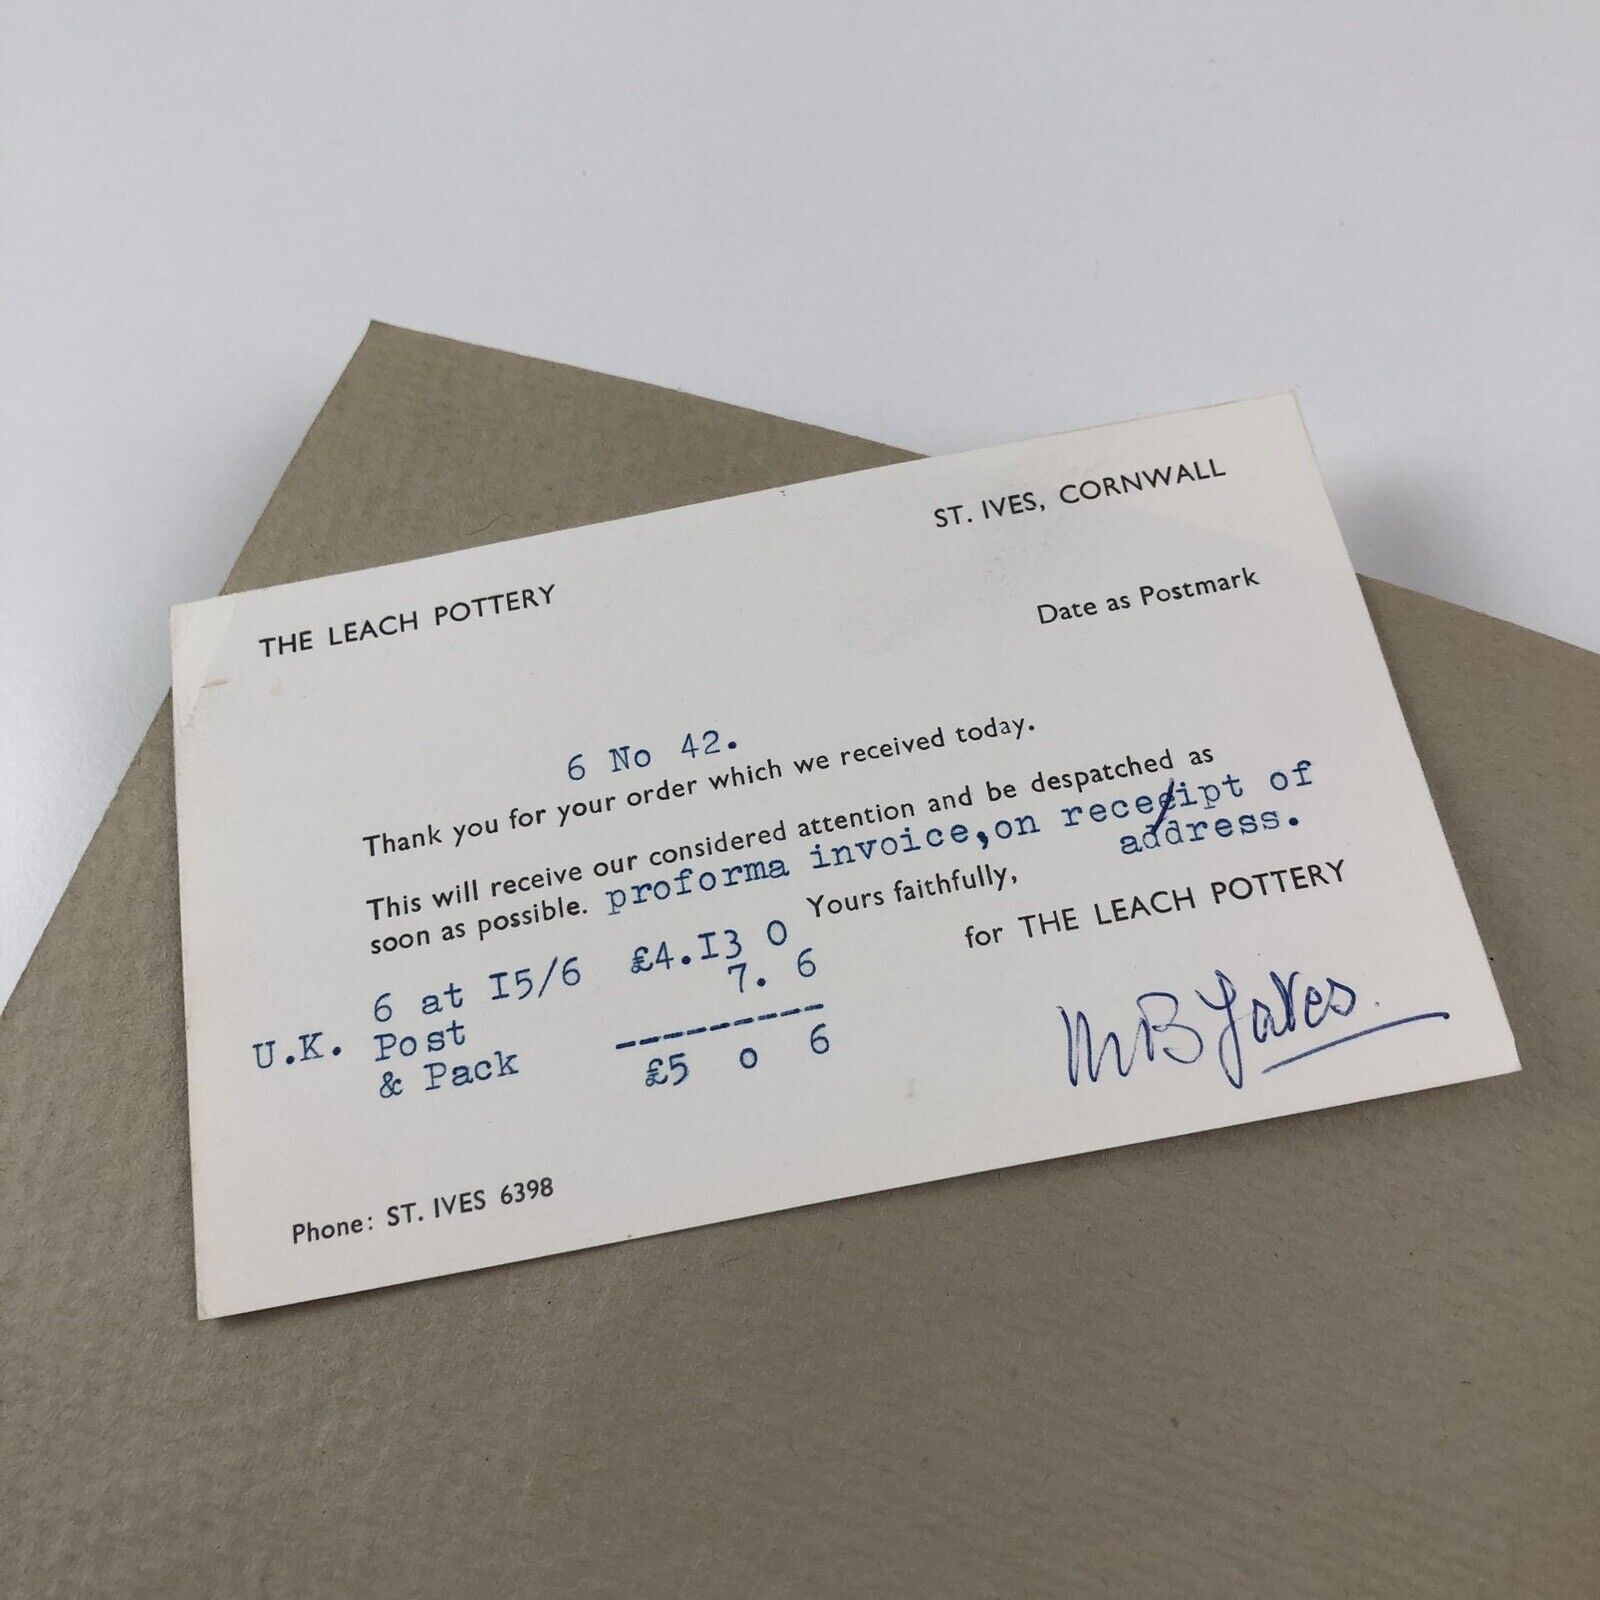 ST. IVES, CORNWALL
THE LEACH POTTERY
Date as Postmark
6 No 42.
Thank you for your order which we received today.
This will receive our considered attention and be despatched as
soon as possible. proforma invoice,on receipt of
address.
Yours faithfully,
for THE LEACH POTTERY
6 at I5/6 £4.I3 0
U.K. Post 7. 6
& Pack ---------
£5 0 6
M B
Phone: ST. IVES 6398